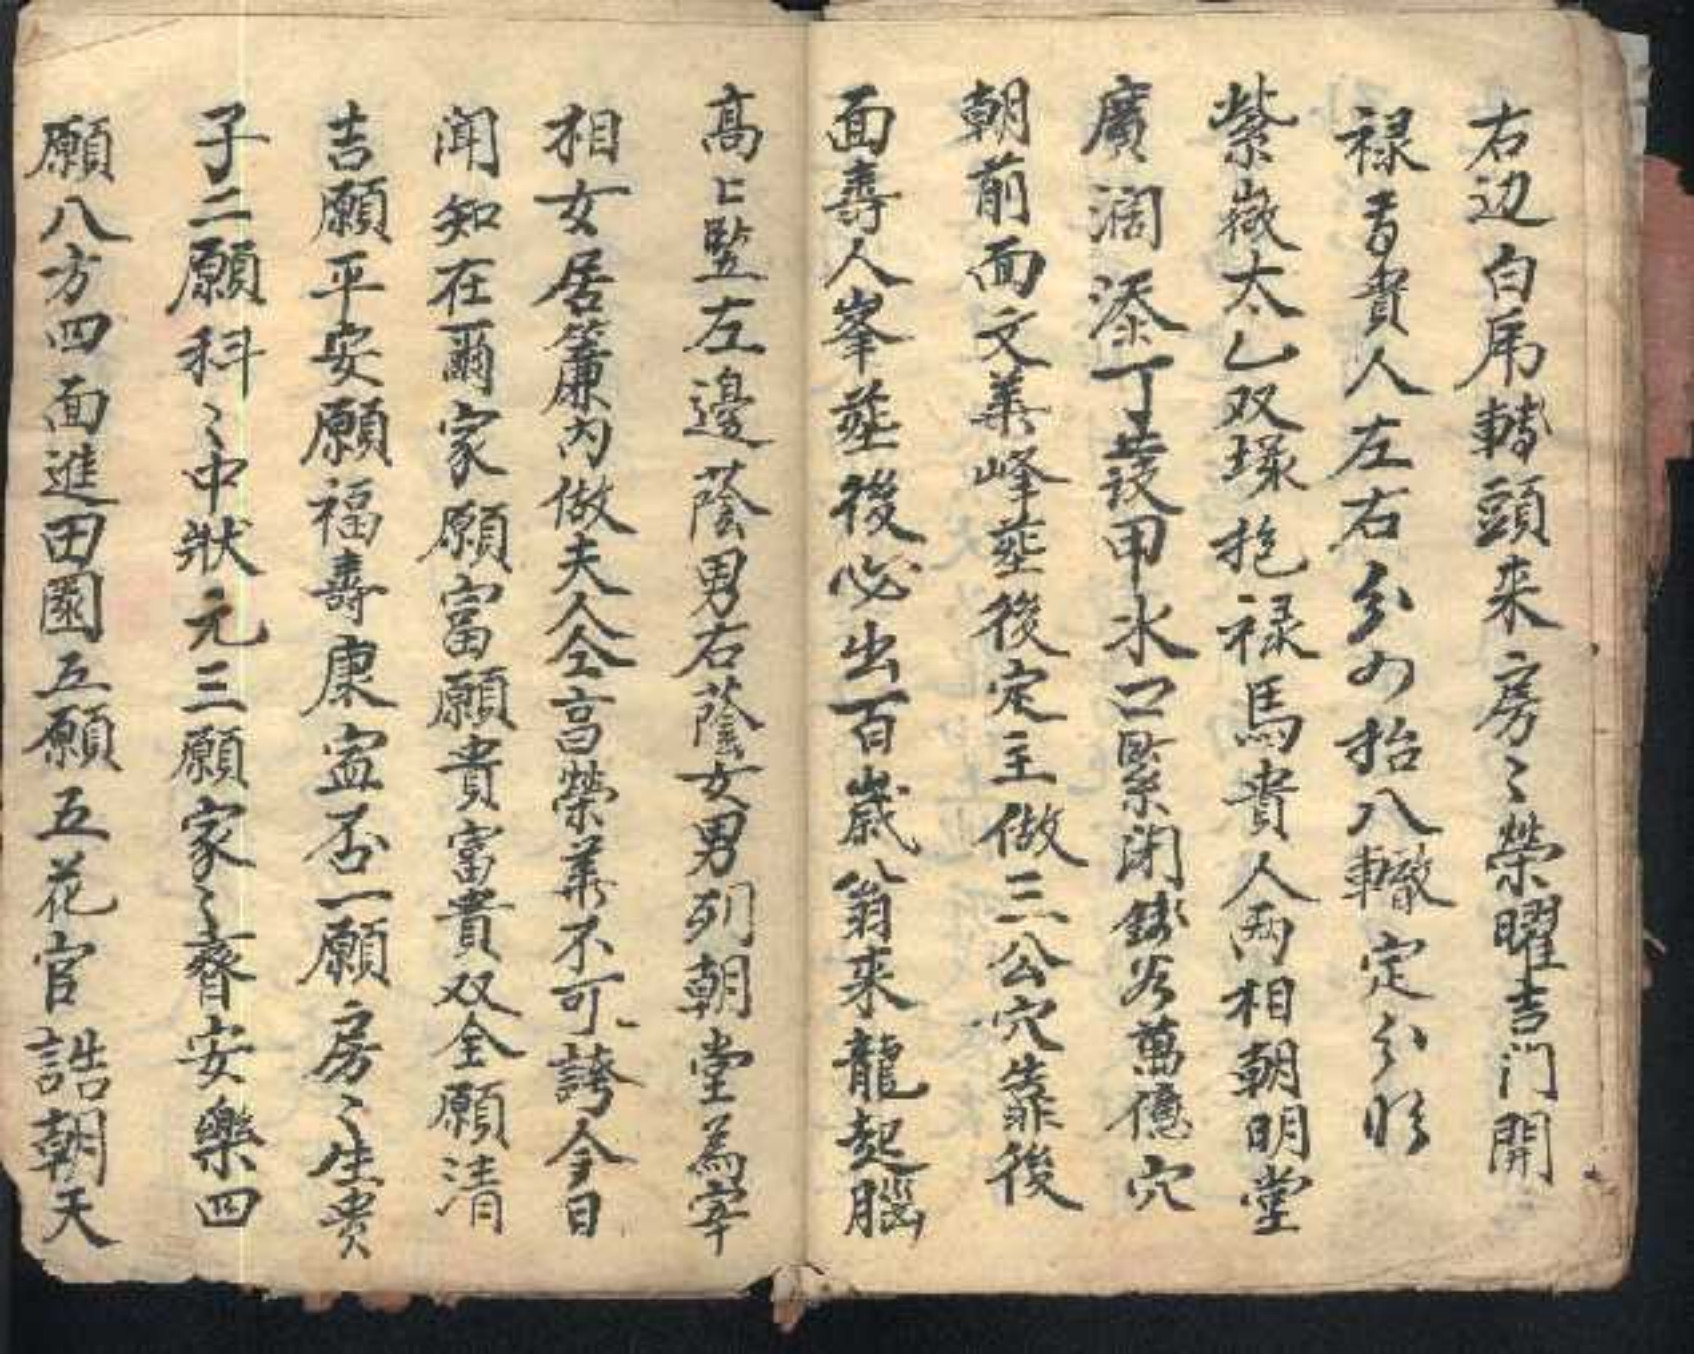 右辺白虎轉頭来房〻榮曜吉门開
禄貴人左右分如抬八轍定分明
紫嶽太乙双塚抱禄馬貴人兩相朝明堂
廣濶添丁並設甲水口緊闭錢谷萬億穴
朝前面文華峰塟後定主做三公穴靠後
面壽人峯塟後必出百歲公翁来龍起腦
高〻竪左邊蔭男右蔭女男列朝堂為宰
相女居簾内做夫人仝享榮華不可誇今日
闻知在爾家願富願貴富貴双全願清
吉願平安願福壽康寍否一願房〻生贵
子二願科〻中狀元三願家〻齊安樂四
願八方四面進田園五願五花官誥朝天